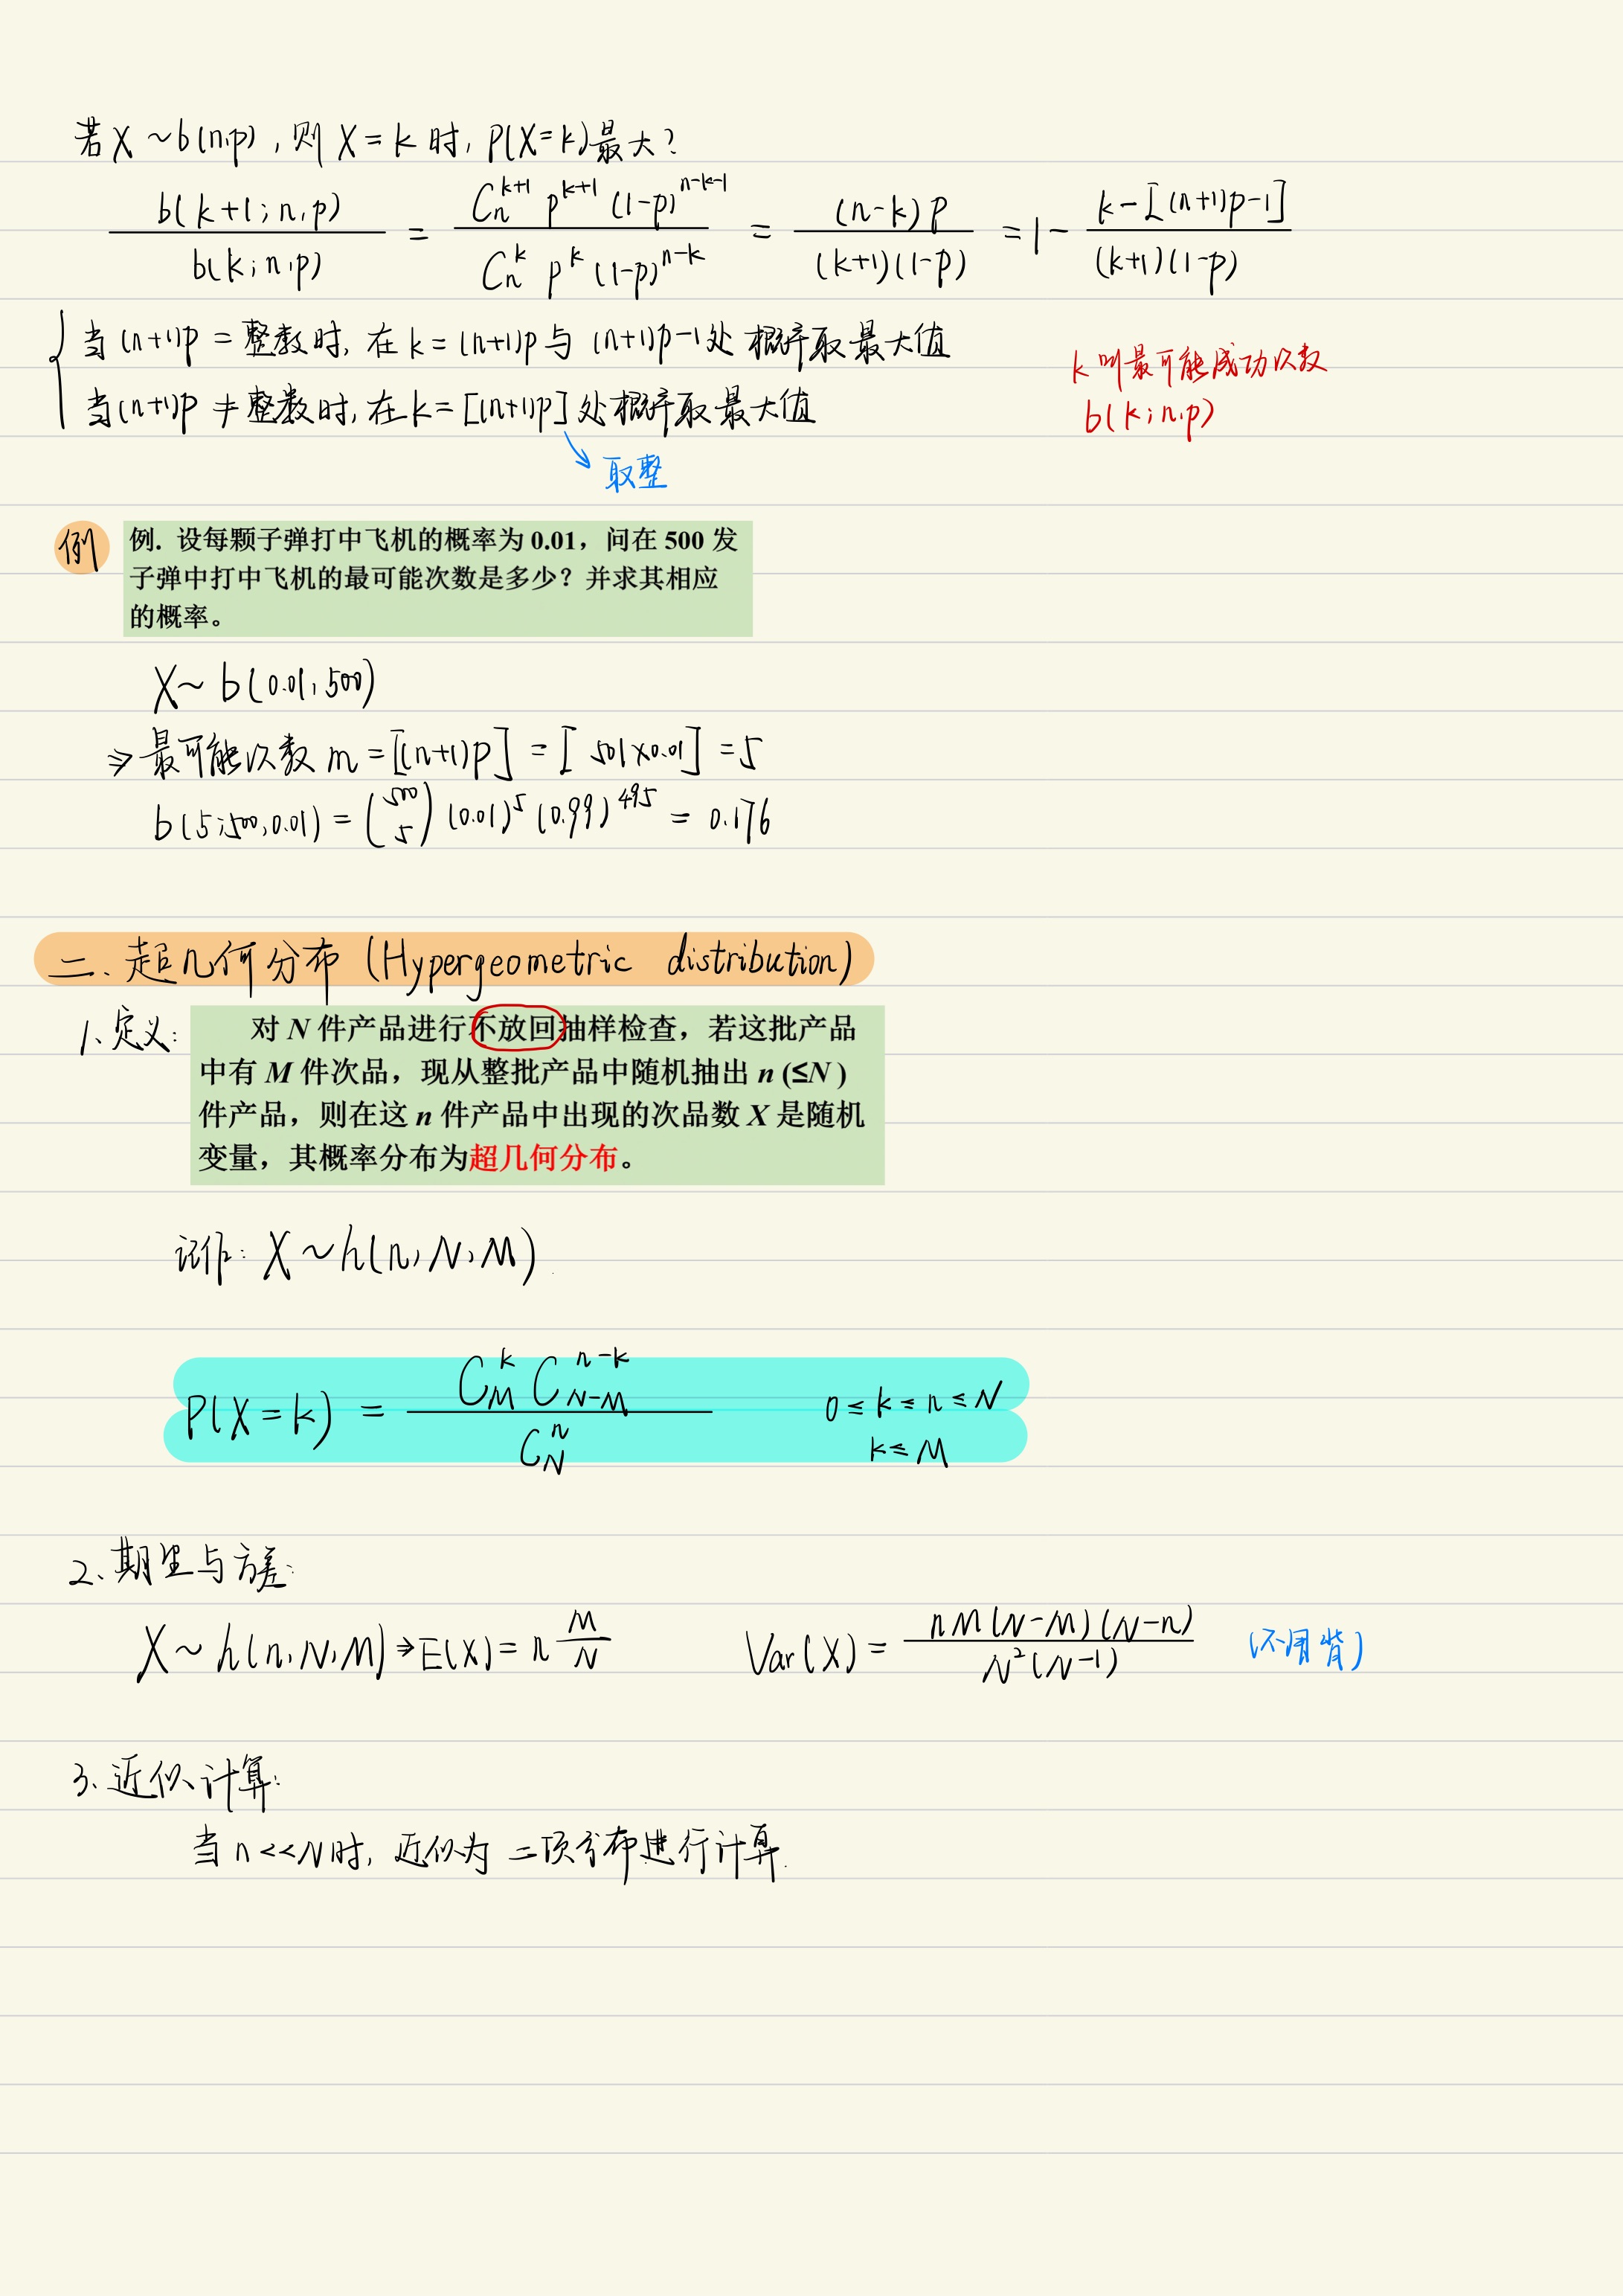 若 X ~ b(n,p), 则 X = k 时, P(X=k)最大?
b(k+1;n,p) / b(k;n,p) = C_n^{k+1} p^{k+1} (1-p)^{n-k-1} / C_n^k p^k (1-p)^{n-k} = (n-k)p / (k+1)(1-p) = 1 - k-[(n+1)p-1] / (k+1)(1-p)
{ 当 (n+1)p = 整数时, 在 k = (n+1)p 与 (n+1)p-1 处 概率取最大值
当 (n+1)p ≠ 整数时, 在 k = [(n+1)p] 处概率取最大值
k 叫最可能成功次数
b(k;n,p)
取整
例
例. 设每颗子弹打中飞机的概率为 0.01，问在 500 发
子弹中打中飞机的最可能次数是多少？并求其相应
的概率。
X ~ b(0.01, 500)
⇒ 最可能次数 m = [(n+1)p] = [501×0.01] = 5
b(5;500,0.01) = (500 5) (0.01)^5 (0.99)^{495} = 0.176
二. 超几何分布 (Hypergeometric distribution)
1、定义:
对 N 件产品进行不放回抽样检查，若这批产品
中有 M 件次品，现从整批产品中随机抽出 n (≤N )
件产品，则在这 n 件产品中出现的次品数 X 是随机
变量，其概率分布为超几何分布。
记作: X ~ h(n, N, M).
P(X=k) = C_M^k C_{N-M}^{n-k} / C_N^n 0 ≤ k ≤ n ≤ N
k ≤ M
2、期望与方差:
X ~ h(n, N, M) ⇒ E(X) = n M/N Var(X) = nM(N-M)(N-n) / N²(N-1) (不用背)
3、近似计算:
当 n << N 时, 近似为 二项分布进行计算.